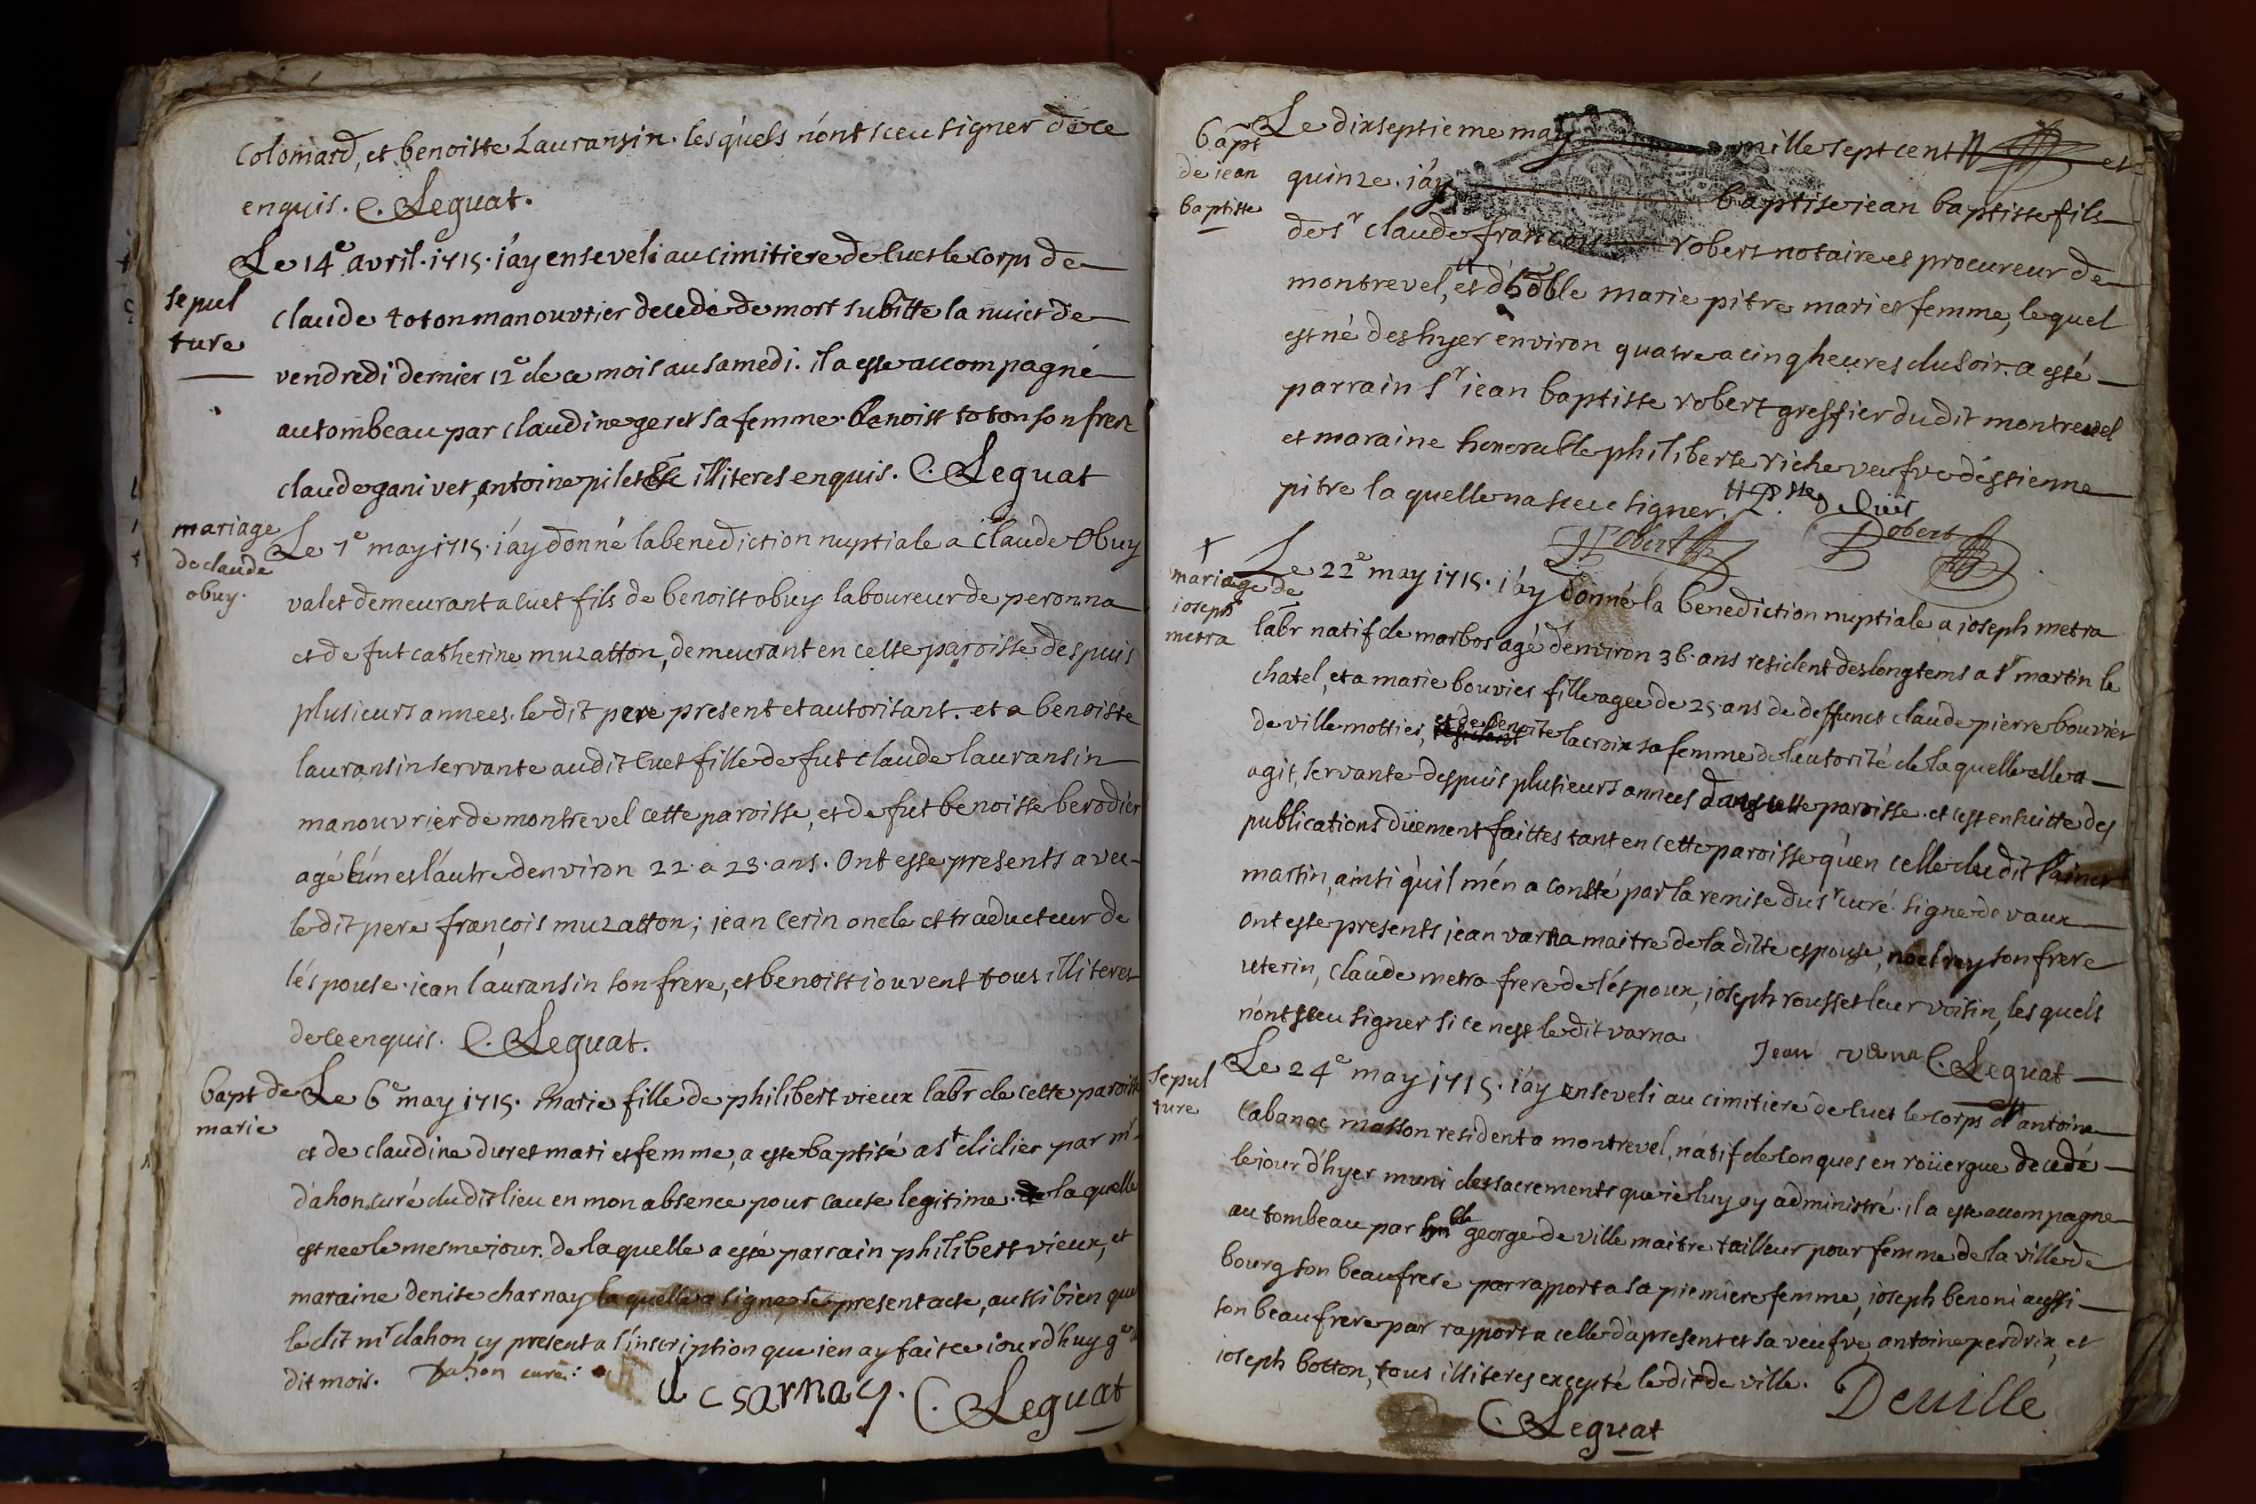 Colomard, et benoiste Lauransin. lesquels n'ont sceu signer de ce
enquis. C. Leguat.
sepul
ture
Le 14e avril. 1715. i'ay enseveli au cimitiere de cuet le corps de
claude toton manouvrier decedé de mort subitte la nuict de
vendredi dernier 12e de ce mois au samedi. il a esté accompagné
au tombeau par claudine geret sa femme benoist toton son frere
claude ganivet, antoine pilet illiteres enquis. C. Leguat
mariage
de claude
obuy.
Le 7e may 1715. i'ay donné la benediction nuptiale a Claude Obuy
valet demeurant a cuet fils de benoist obuy laboureur de peronna
et de fut catherine muzatton, demeurant en cette paroisse despuis
plusieurs annees. le dit pere present et autorisant. et a benoiste
lauransin servante audit Cuet fille de fut claude lauransin
manouvrier de montrevel cette paroisse, et de fut benoiste berodier
agé l'un et l'autre denviron 22. a 23. ans. Ont esse presents avec
le dit pere françois muzatton; jean Cerin oncle et traducteur de
l'éspouse. iean lauransin son frere, et benoist iouvent tous illiteres
de ce enquis. C. Leguat.
bapt de
marie
Le 6e may 1715. Marie fille de philibert vieux labr de cette paroisse
et de claudine duret mari et femme, a esse baptisé a st didier par mr
d'ahon curé dudit lieu en mon absence pour cause legitime. la quelle
est nee le mesme jour. de laquelle a esté parrain philibert vieux, et
maraine denise charnay la quelle a signe le present acte, aussi bien que
le dit mr dahon cy present a l'inscription que ien ay faitce iourd'huy 9e
dit mois. Dahon curé:
d csarnay. C. Leguat
bapt
de iean
baptiste
Le dixseptieme may mille sept cent et
quinze. i'ay baptise iean baptiste fils
de sr claude francois robert notaire et procureur de
montrevel, et d'hoble marie pitre mari et femme, lequel
est né des hyer environ quatre a cinq heures du soir. a esté
parrain sr iean baptiste robert greffier dudit montrevel
et maraine honorable philiberte riche veufve d'estienne
pitre la quelle na sceu signer.
JRobert Robert
+
mariage de
ioseph
metra
Le 22e may 1715. i'ay donné la benediction nuptiale a joseph metra
labr natif de marbos agé denviron 36. ans resident des longtems a st martin le
chatel, et a marie bouvier fille agee de 25. ans de deffunct claude pierre bouvier
de ville mottier, et de benoite lacroix sa femme de l'eutorité de laquelle elle a
agit, servante despuis plusieurs annees dans cette paroisse. et cest ensuitte des
publications düement faittes tant en cette paroisse qu'en celle du dit saint
martin, ainsi qu'il m'en a consté par la remise du sr curé. signe de vaux
Ont este presents jean varna maitre de la ditte espouse, noel rey son frere
uterin, claude metra frere de l'éspoux, ioseph rousset leur voisin, les quels
n'ont sceu signer si ce n'est le dit varna
Jean Varna C. Leguat
sepul
ture
Le 24e may 1715. i'ay enseveli au cimitiere de cuet le corps d'antoine
Cabanac masson resident a montrevel, natif de Conques en roüergue decedé
le jour d'hyer muni des sacrements que ie luy ay administré. il a esté accompagne
au tombeau par hnble george de ville maitre tailleur pour femme de la ville de
bourg son beaufrere par rapport a sa premiere femme, ioseph benoni aussi
son beaufrere par rapport a celle d'apresent et sa veufve antoine perdrix, et
ioseph botton, tous illiteres excepté le dit de ville. Deuille
C. Leguat